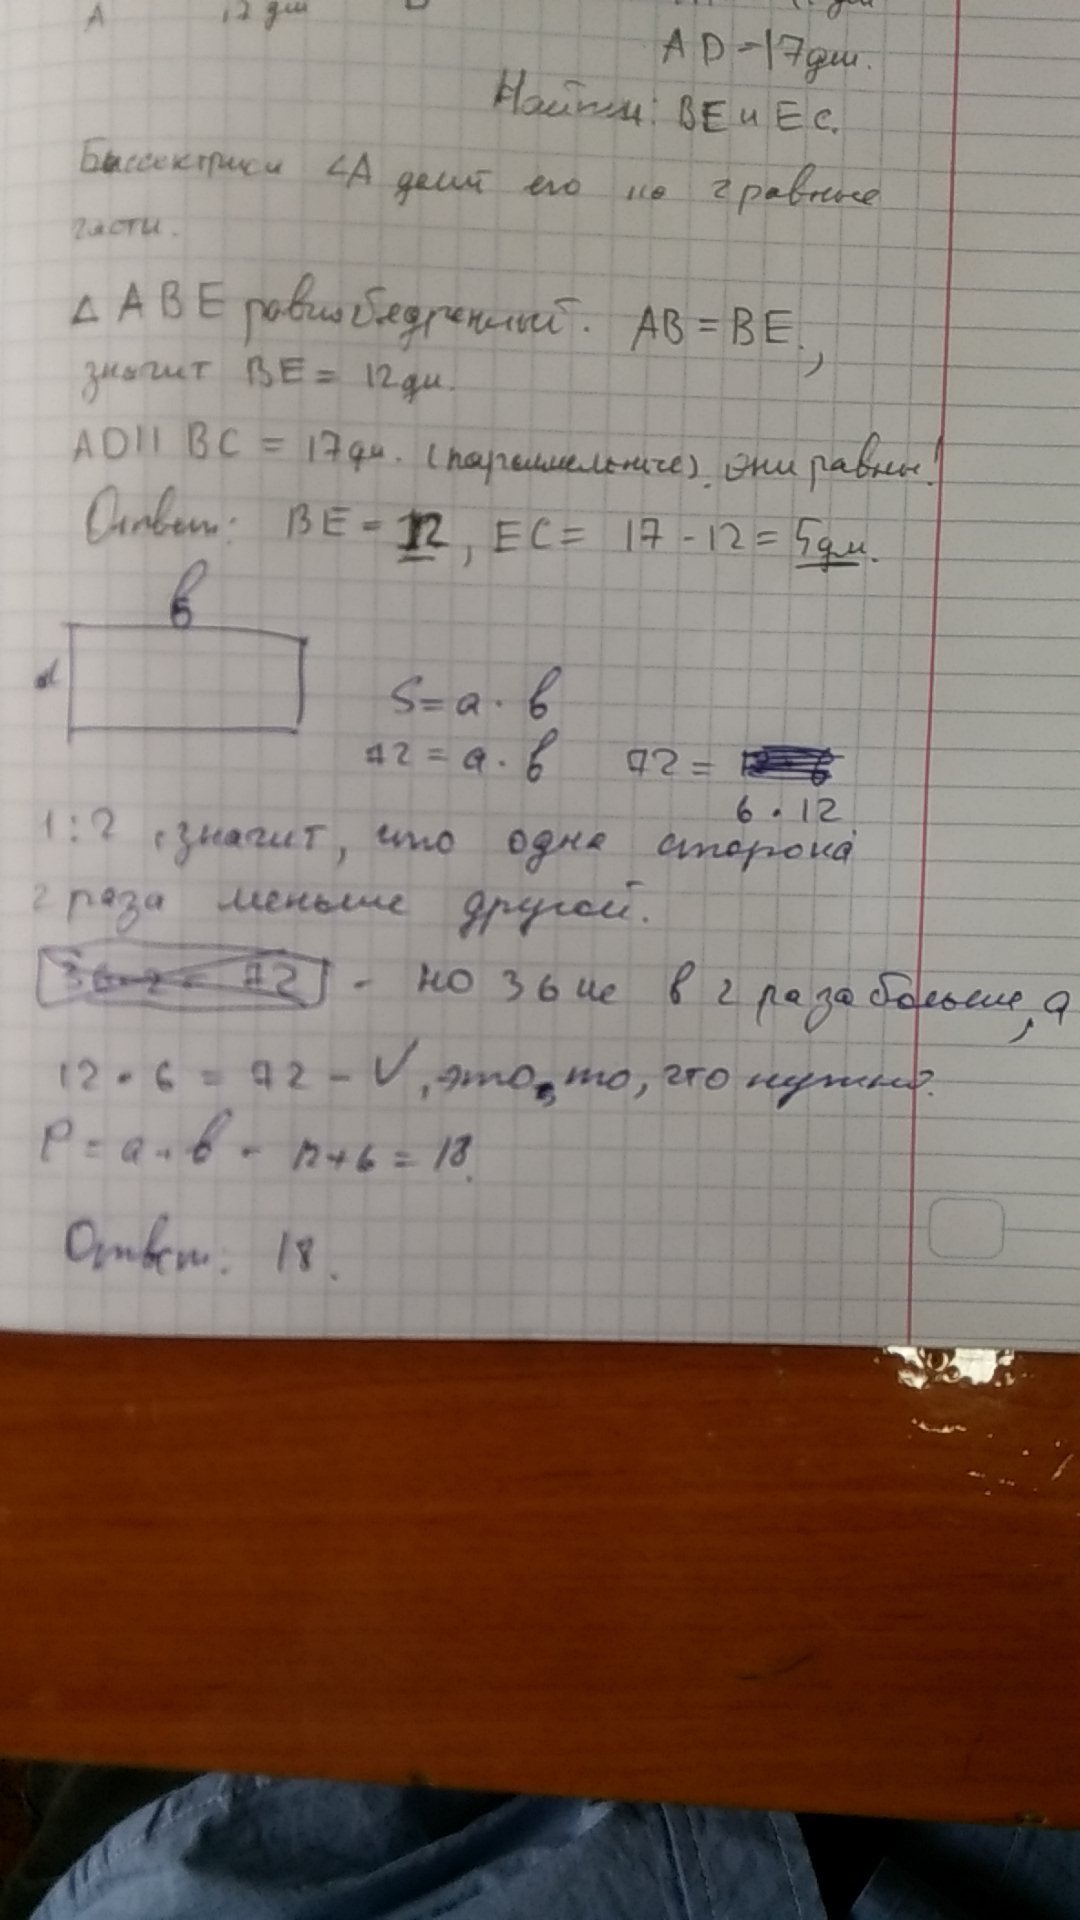 A 12 дм D
AD = 17дм.
Найти: BE и EC.
Биссектриса ∠A делит его на 2 равные
части.
△ ABE равнобедренный. AB = BE,
значит BE = 12 дм.
AD || BC = 17дм. (параллельные). Они равны!
Ответ: BE = 12, EC = 17 - 12 = 5дм.
в
a
S = a · в
72 = a · в 72 =
6 · 12
1:2, значит, что одна сторона
2 раза меньше другой.
36·2 = 72 - но 36 не в 2 раза больше, а
12 · 6 = 72 - V, это, то, что нужно.
P = a + в = 12+6 = 18.
Ответ: 18.